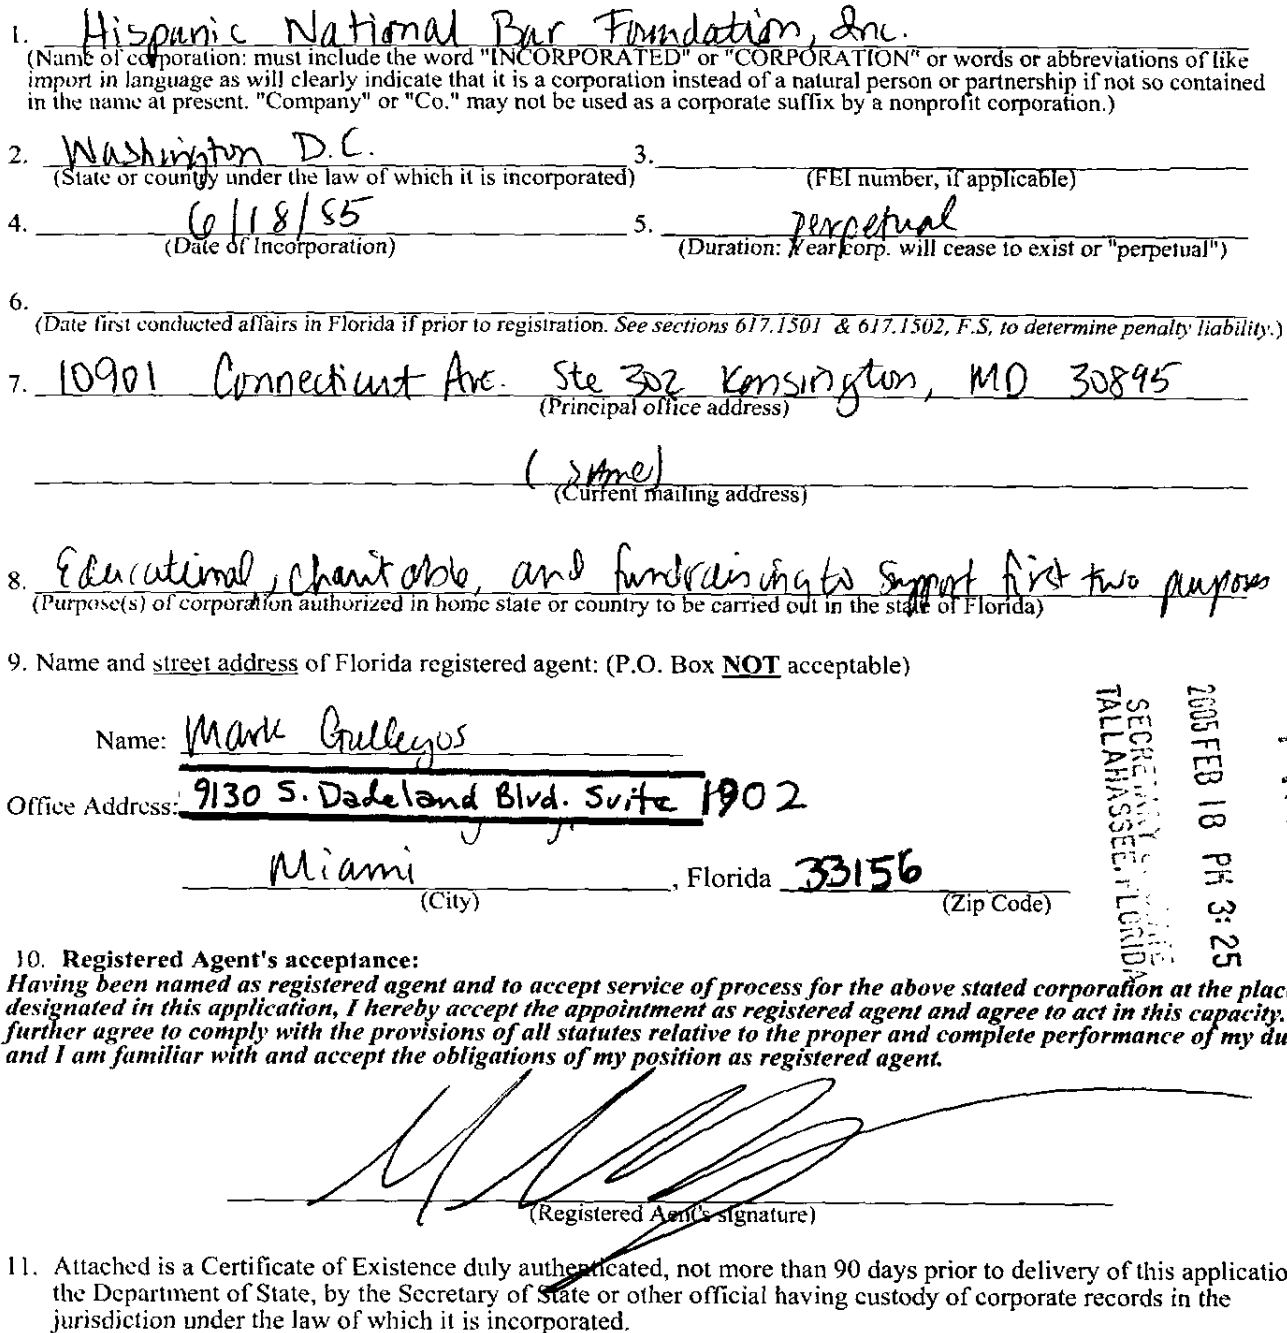 1. Hispanic National Bar Foundation, Inc.
(Name of corporation: must include the word "INCORPORATED" or "CORPORATION" or words or abbreviations of like
import in language as will clearly indicate that it is a corporation instead of a natural person or partnership if not so contained
in the name at present. "Company" or "Co." may not be used as a corporate suffix by a nonprofit corporation.)
2. Washington D.C. 3.
(State or country under the law of which it is incorporated) (FEI number, if applicable)
4. 6/18/85 5. perpetual
(Date of Incorporation) (Duration: Year corp. will cease to exist or "perpetual")
6.
(Date first conducted affairs in Florida if prior to registration. See sections 617.1501 & 617.1502, F.S, to determine penalty liability.)
7. 10901 Connecticut Ave. Ste 302 Kensington, MD 30895
(Principal office address)
(same)
(Current mailing address)
8. Educational, charitable, and fundraising to support first two purposes
(Purpose(s) of corporation authorized in home state or country to be carried out in the state of Florida)
9. Name and street address of Florida registered agent: (P.O. Box NOT acceptable)
Name: Mark Gallegos
Office Address: 9130 S. Dadeland Blvd. Suite 1902
Miami, Florida 33156
(City) (Zip Code)
2005 FEB 18 PM 3:25
SECRETARY
TALLAHASSEE, FLORIDA
10. Registered Agent's acceptance:
Having been named as registered agent and to accept service of process for the above stated corporation at the plac
designated in this application, I hereby accept the appointment as registered agent and agree to act in this capacity.
further agree to comply with the provisions of all statutes relative to the proper and complete performance of my du
and I am familiar with and accept the obligations of my position as registered agent.
(Registered Agent's signature)
11. Attached is a Certificate of Existence duly authenticated, not more than 90 days prior to delivery of this applicatio
the Department of State, by the Secretary of State or other official having custody of corporate records in the
jurisdiction under the law of which it is incorporated.